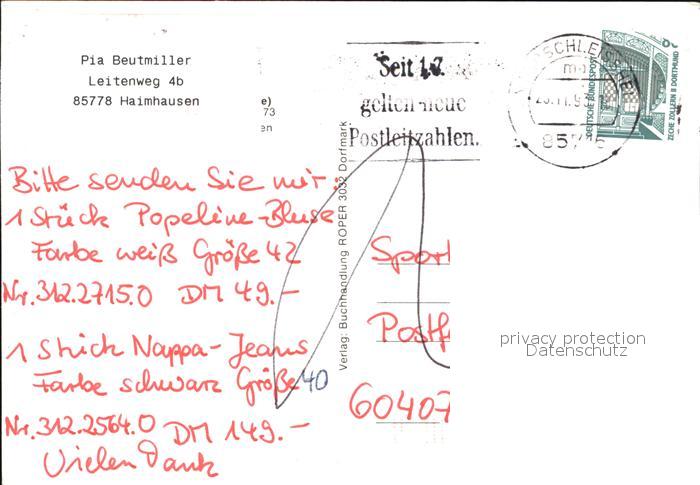 Pia Beutmiller
Leitenweg 4b
85778 Haimhausen
e)
73
en
Seit 1.7.
gelten neue
Postleitzahlen.
SCHLEISSHE
85716
DEUTSCHE BUNDESPOST
ZECHE ZOLLERN II DORTMUND
Bitte senden Sie mir:
1 Stück Popeline-Bluse
Farbe weiß Größe 42
Nr. 312.2715.0 DM 49.-
1 Stück Nappa-Jeans
Farbe schwarz Größe 40
Nr. 312.2564.0 DM 149.-
Vielen Dank
Verlag: Buchhandlung ROPER 3032 Dorfmark
Sport
Postf
60407
privacy protection
Datenschutz